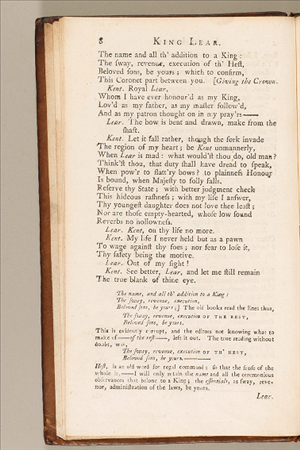 8 KING LEAR.
The name and all th' addition to a King :
The sway, revenue, execution of th' Hest,
Beloved sons, be yours ; which to confirm,
This Coronet part between you. [Giving the Crown.
Kent. Royal Lear,
Whom I have ever honour'd as my King,
Lov'd as my father, as my master follow'd,
And as my patron thought on in my pray'rs——
Lear. The bow is bent and drawn, make from the
shaft.
Kent. Let it fall rather, though the fork invade
The region of my heart ; be Kent unmannerly,
When Lear is mad : what would'st thou do, old man ?
Think'st thou, that duty shall have dread to speak,
When pow'r to flatt'ry bows ? to plainness Honour
Is bound, when Majesty to folly falls.
Reserve thy State ; with better judgment check
This hideous rashness ; with my life I answer,
Thy youngest daughter does not love thee least ;
Nor are those empty-hearted, whose low sound
Reverbs no hollowness.
Lear. Kent, on thy life no more.
Kent. My life I never held but as a pawn
To wage against thy foes ; nor fear to lose it,
Thy safety being the motive.
Lear. Out of my sight !
Kent. See better, Lear, and let me still remain
The true blank of thine eye.
The name, and all th' addition to a King :
The sway, revenue, execution,
Beloved sons, be yours ;] The old books read the lines thus,
The sway, revenue, execution OF THE REST,
Beloved sons, be yours.
This is evidently corrupt, and the editors not knowing what to
make of——of the rest——, left it out. The true reading without
doubt, was,
The sway, revenue, execution OF TH' HEST,
Beloved sons, be yours.——
Hest, is an old word for regal command : so that the sense of the
whole is,—I will only retain the name and all the ceremonious
observances that belong to a King ; the essentials, as sway, reve-
nue, administration of the laws, be yours.
Lear.